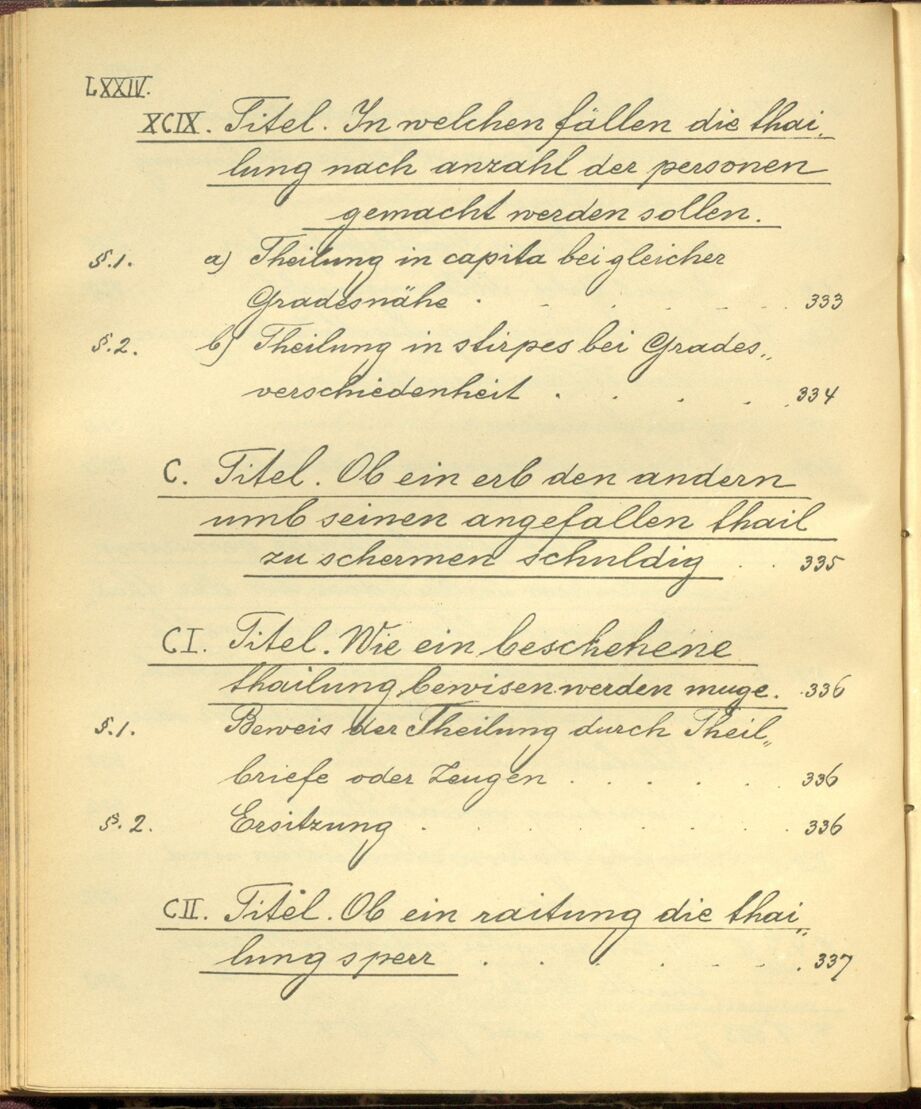 LXXIV.
XCIX. Titel. In welchen fällen die thai„
lung nach anzahl der personen
gemacht werden sollen.
§.1. a) Theilung in capita bei gleicher
Gradesnähe . . . . . . 333
§.2. b) Theilung in stirpes bei Grades„
verschiedenheit . . . . . 334
C. Titel. Ob ein erb den andern
umb seinen angefallen thail
zu schermen schuldig . . 335
CI. Titel. Wie ein beschehene
thailung bewisen werden muge. . 336
§.1. Beweis der Theilung durch Theil„
briefe oder Zeugen . . . . . . 336
§.2. Ersitzung . . . . . . . 336
CII. Titel. Ob ein raitung die thai„
lung sperr . . . . . . . 337